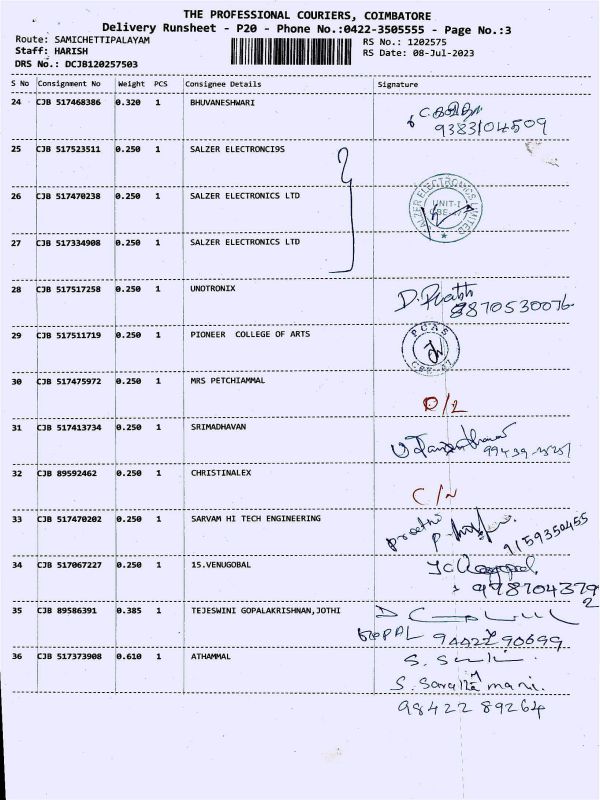 THE PROFESSIONAL COURIERS, COIMBATORE
Delivery Runsheet - P20 - Phone No.:0422-3505555 - Page No.:3
Route: SAMICHETTIPALAYAM
RS No.: 1202575
Staff: HARISH
RS Date: 08-Jul-2023
DRS No.: DCJB120257503
S No Consignment No Weight PCS Consignee Details Signature
24 CJB 517468386 0.320 1 BHUVANESHWARI
9383104509
25 CJB 517523511 0.250 1 SALZER ELECTRONCI9S
26 CJB 517470238 0.250 1 SALZER ELECTRONICS LTD
SALZER ELECTRONICS LIMITED
UNIT-I
CBE-47
27 CJB 517334908 0.250 1 SALZER ELECTRONICS LTD
28 CJB 517517258 0.250 1 UNOTRONIX
8870530076
29 CJB 517511719 0.250 1 PIONEER COLLEGE OF ARTS
PCAS
CBE-47
30 CJB 517475972 0.250 1 MRS PETCHIAMMAL
D/L
31 CJB 517413734 0.250 1 SRIMADHAVAN
32 CJB 89592462 0.250 1 CHRISTINALEX
C/N
33 CJB 517470202 0.250 1 SARVAM HI TECH ENGINEERING
Preethi
9159350455
34 CJB 517067227 0.250 1 15.VENUGOBAL
35 CJB 89586391 0.385 1 TEJESWINI GOPALAKRISHNAN,JOTHI
GOPPAL 9442290699
36 CJB 517373908 0.610 1 ATHAMMAL
S. Saravana mani.
98422 89264